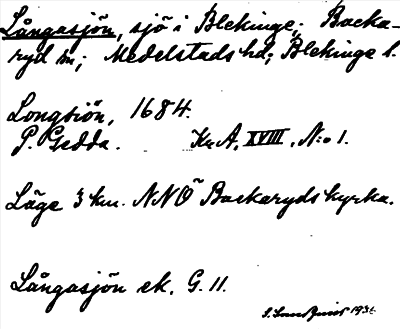 Långasjön, sjö i Blekinge; Backa-
ryd sn; Medelstads hd; Blekinge l.
Longsiön, 1684.
P. Gedda. Kr A, XVIII, N:o 1.
Läge 3 km. NNÖ Backaryds kyrka.
Långasjön ek. G. 11.
1931.